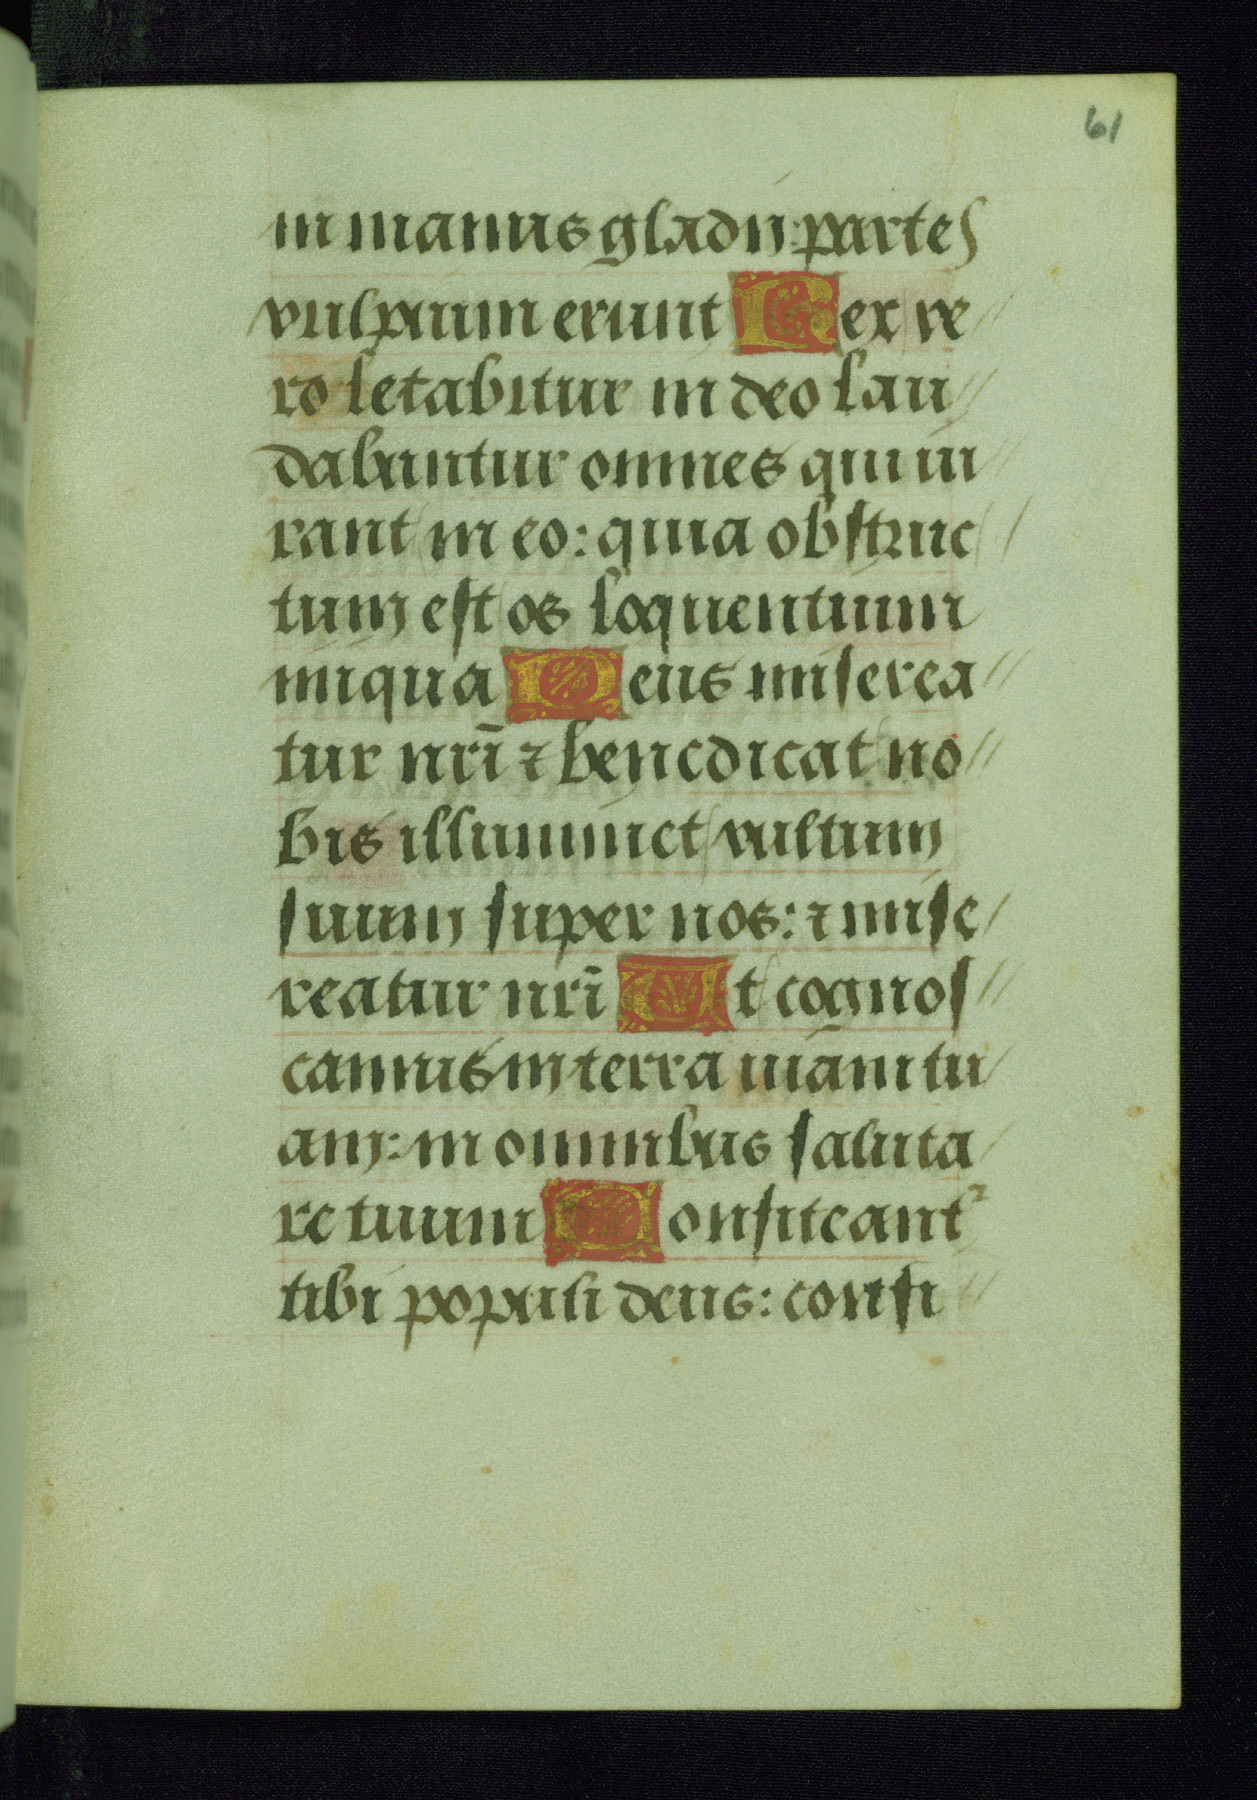 61
in manus gladii: partes
vulpium erunt Rex ve
ro letabitur in deo lau
dabuntur omnes qui iu
rant in eo: quia obstruc
tum est os loquentium
iniqua Deus miserea
tur nr̄i ⁊ benedicat no
bis illuminet vultum
suum super nos: ⁊ mise
reatur nr̄i Ut cognos
camus in terra uiam tu
am: in omnibus saluta
re tuum Confiteantᷣ
tibi populi deus: confi